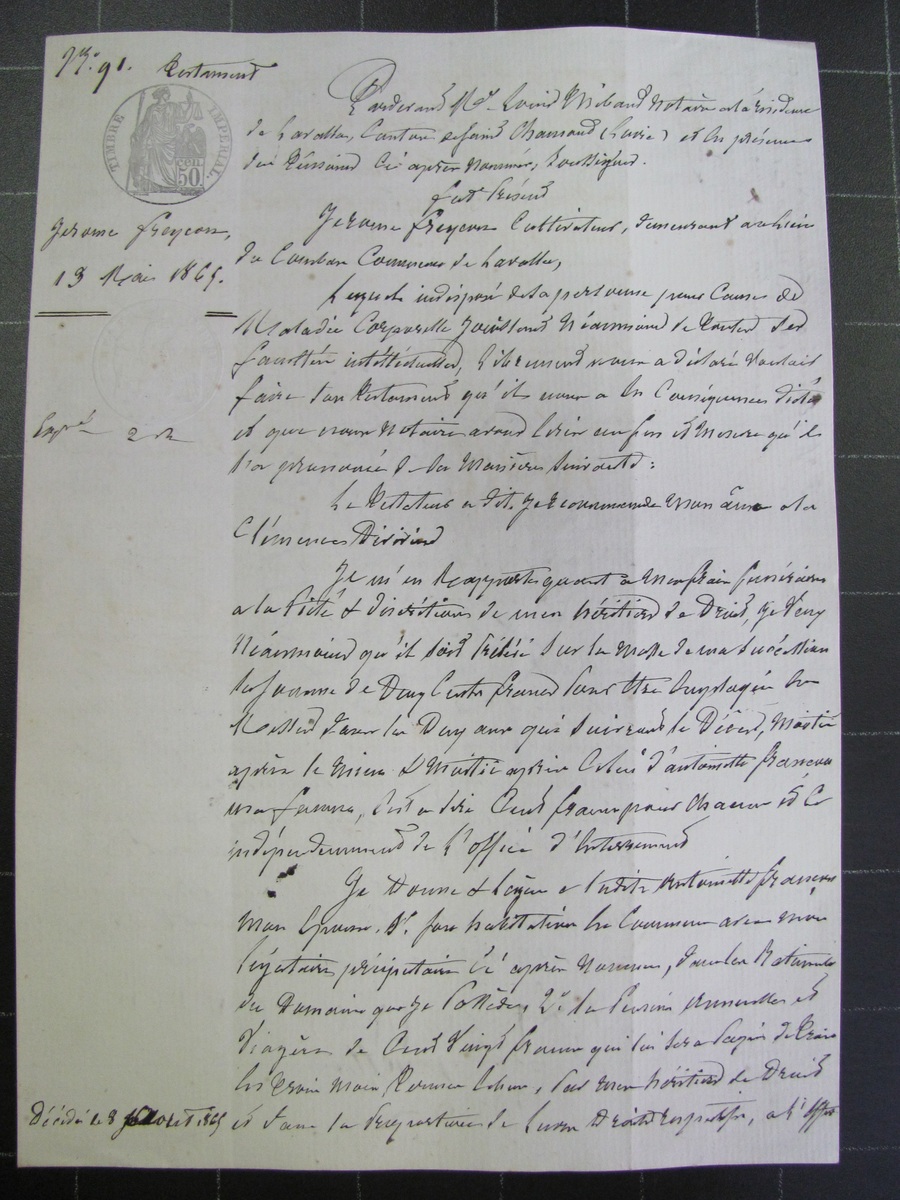 N° 91. Testament
TIMBRE IMPERIAL
50 CEN
Pardevant Me Louis Notaire à la résidence
de Lavalla, Canton de Saint Chamond (Loire) et en présence
des témoins ci après nommés, soussignés.
fut Présent
Jerome freycon Cultivateur, demeurant au lieu
du Commune de Lavalla,
Jerome freycon,
13 Mai 1865.
Lequel indisposé de sa personne pour Cause de
Maladie Corporelle Jouissant Néanmoins de toutes ses
facultés intellectuelles, librement nous a déclaré Vouloir
faire son testament qu'il nous a en Conséquence dicté
et que nous Notaire avons écrit au fur et Mesure qu'il
l'a prononcé de la Manière suivante :
Expé 2 R
Le Testateur a dit, Je recommande mon âme a la
Clémence Divine
Je m'en Rapporte quant a Mes frais funéraires
a la Piété & discrétion de mes héritiers de Droit, Je Veux
Néanmoins qu'il soit Prélevé sur la Masse de ma Succession
la somme de Deux Cents francs pour être employée en
Messes dans les Deux ans qui suivront le Décès, Moitié
après le Mien & Moitié après Celui d'antoinette
ma femme, C'est a dire Cent francs pour Chacun et Ce
indépendamment de l'office d'Enterrement
Je Donne & Lègue a ladite Antoinette
Mon Epouse, 1° son habitation En Commun avec mon
légataire précipitaire Ci après Nommé, dans les Batiments
du Domaine que Je Possède, 2° la Pension Annuelle et
Viagère de Cent Vingt francs qui lui sera Payée de trois
En trois Mois Par mes héritiers de Droit
Décédé le 8 1865
et dans la Proportion de leurs Droits respectifs, a l'